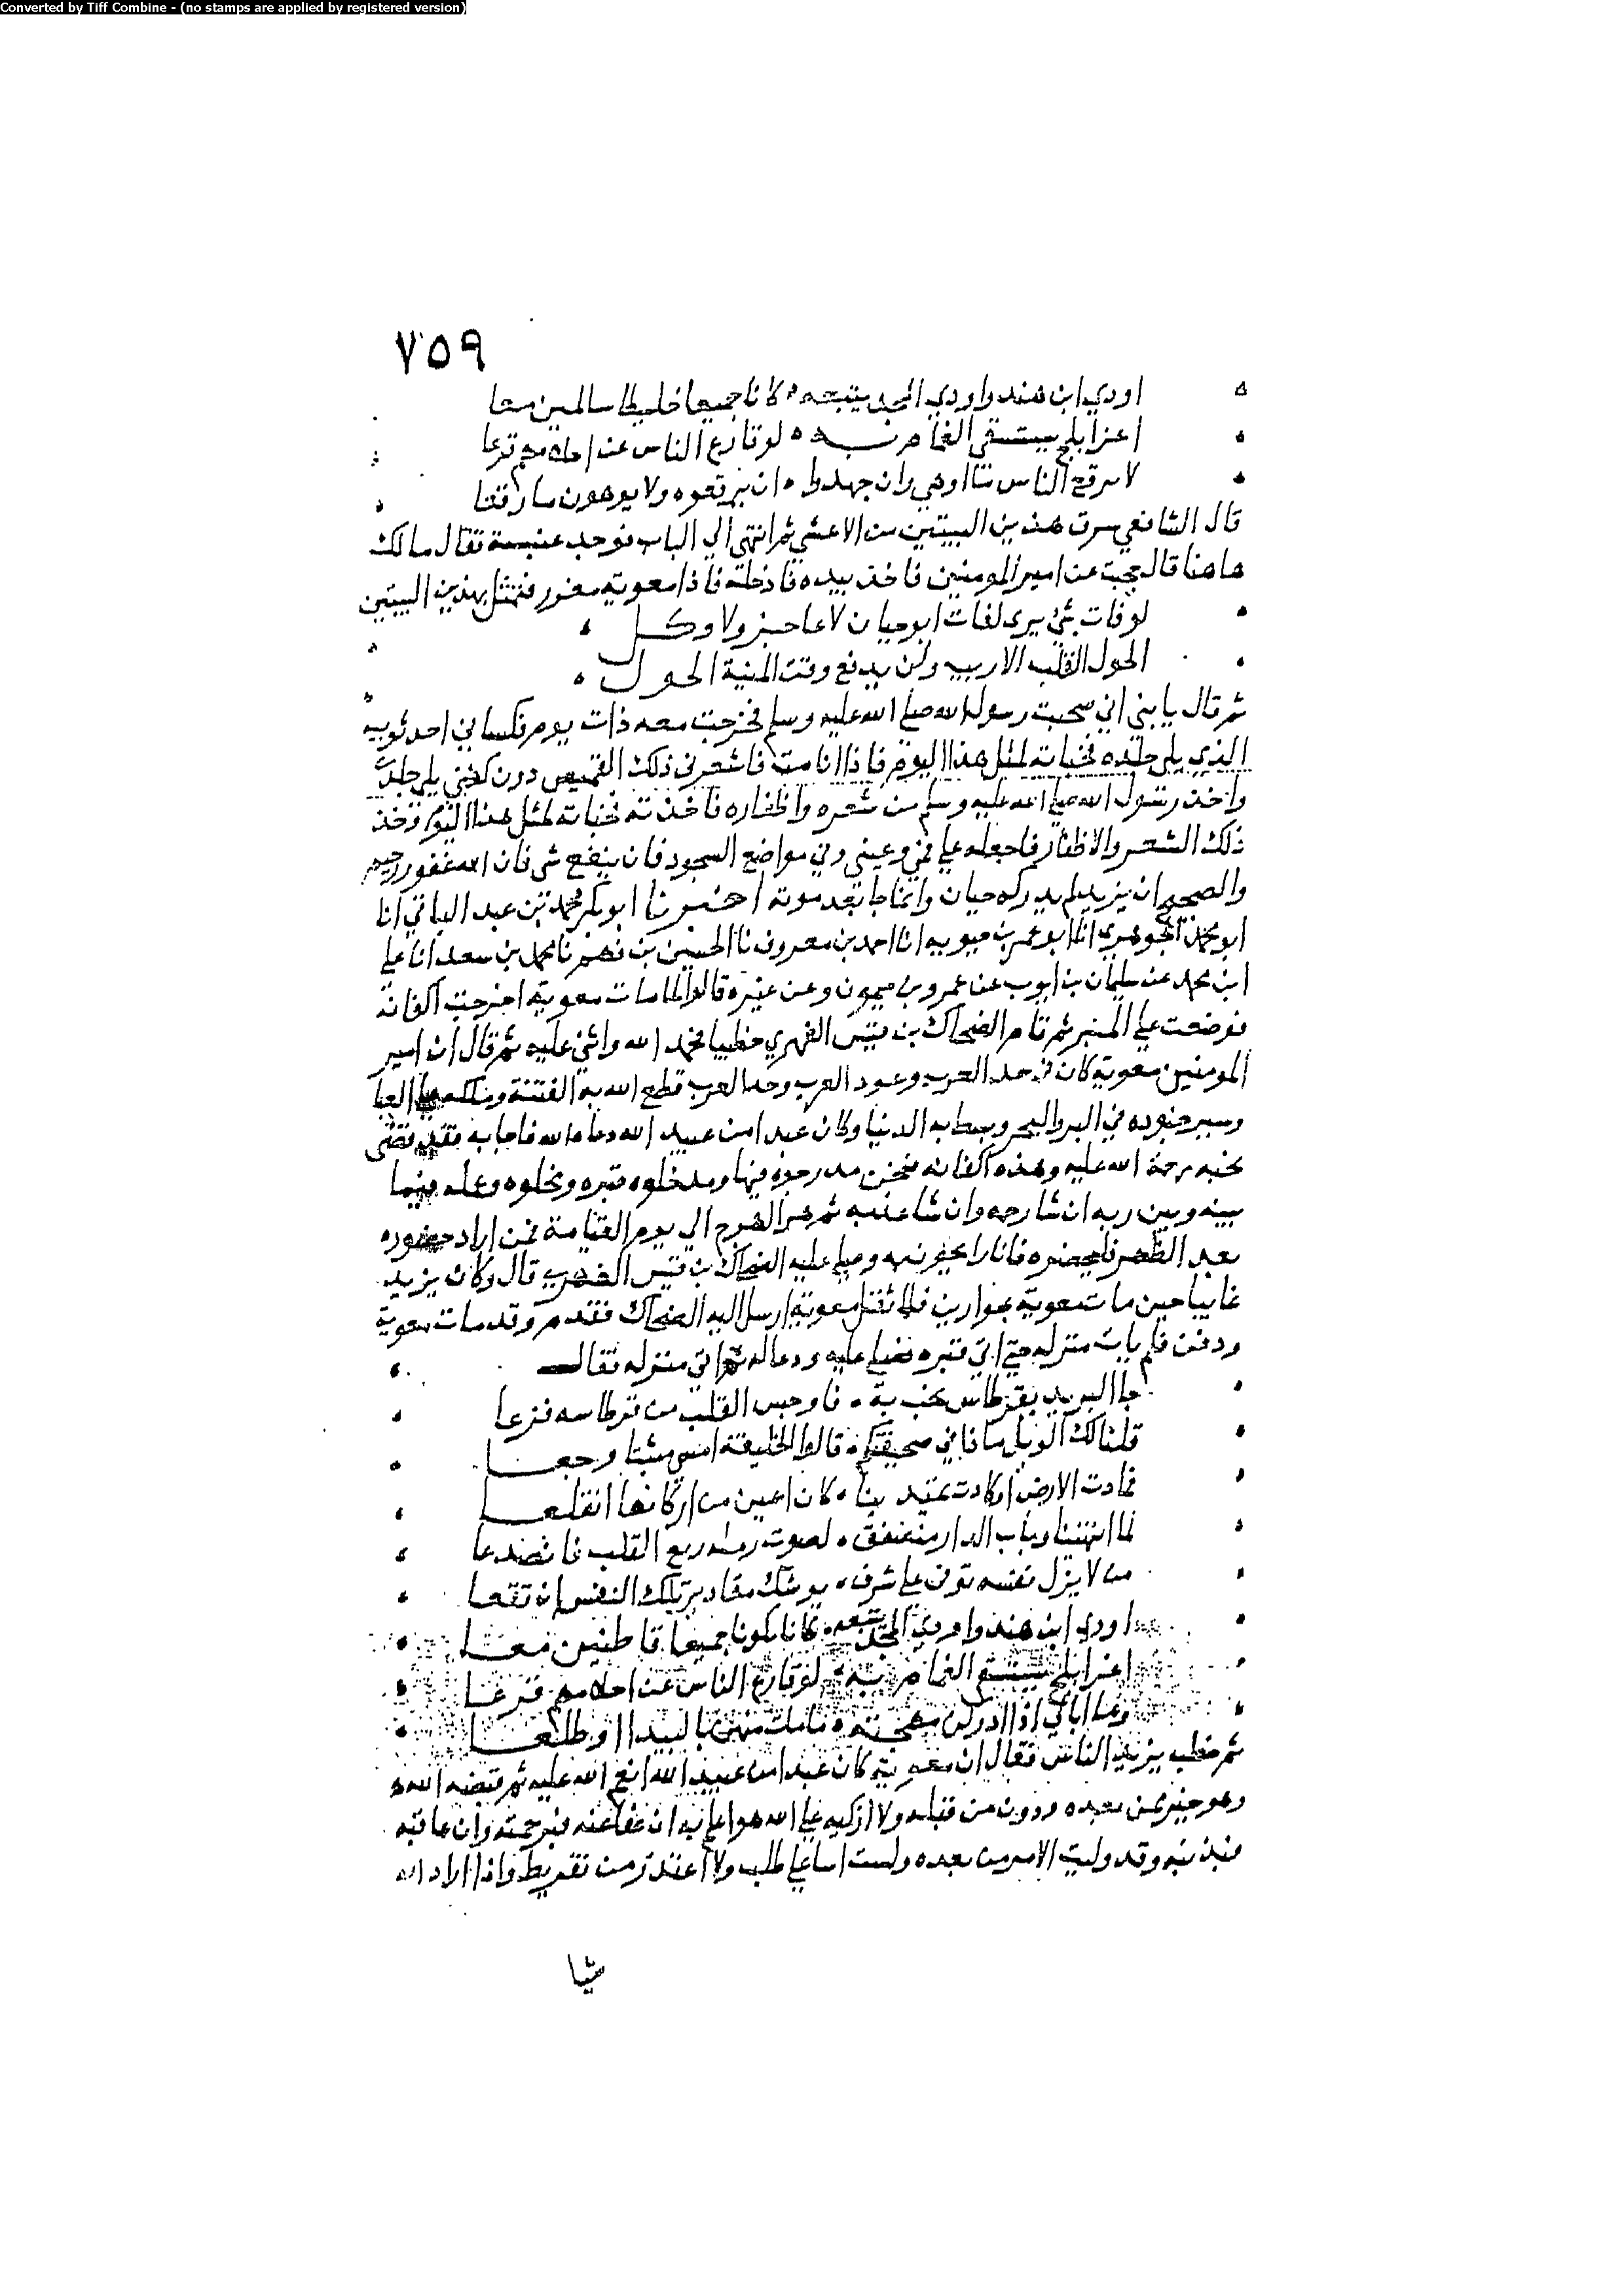 Converted by Tiff Combine - (no stamps are applied by registered version)
٧٥٩
اودي ابن هند واودي المجد يتبعه كانا جميعا خليطا سالمين معا
اغر ابلج يستسقى الغمام به لو قارع الناس عن احلامهم قرعا
لا يرقع الناس ما اوهي وان جهدوا ان يرقعوه ولا يوهون ما رقعا
قال الشافعي سرق هذين البيتين من الاعشي ثم انتهى الي الباب فوجد عنبسة فقال مالك
هاهنا قال حجبت عن امير المومنين فاخذ بيده فادخله فاذا معوية مغمور فتمثل بهذين البيتين
لو فات شئ يرى لفات ابو حيان لا عاجز ولا وكل
الحول القلب الاريب ولن يدفع وقت المنية الحول
ثم قال يا بني اني صحبت رسول الله صلي الله عليه وسلم فخرجت معه ذات يوم فكساني احد ثوبيه
الذي يلي جلده فخباته لمثل هذا اليوم فاذا انا مت فاشعرني ذلك القميص دون كفني يلي جلدي
واخذ رسول الله صلي الله عليه وسلم من شعره واظفاره فاخذته فخباته لمثل هذا اليوم فخذ
ذلك الشعر والاظفار فاجعله علي فمي وعيني وفي مواضع السجود فان ينفع شي فان الله غفور رحيم
والصحيح ان يزيد لم يدركه حيان وانما جا بعد موته اخبرنا ابو بكر محمد بن عبد الباقي انا
ابو محمد الجوهري انا ابو عمر بن حيويه انا احمد بن معروف نا الحسين بن فهم نا محمد بن سعد انا علي
ابن محمد عن سليمان بن ايوب عن عمرو بن ميمون وعن غيره قالوا لما مات معوية اخرجت اكفانه
فوضعت علي المنبر ثم قام الضحاك بن قيس الفهري خطيبا فحمد الله واثني عليه ثم قال ان امير
المومنين معوية كان في حد العرب وعود العرب وحد العرب قطع الله به الفتنة وملكه علي العبا
وسير جنوده في البر والبحر وبسط به الدنيا وكان عبدا من عبيد الله دعاه الله فاجابه فقد قضى
نحبه رحمة الله عليه وهذه اكفانه فنحن مدرجوه فيها ومدخلوه قبره ومخلوه وعمله فيما
بينه وبين ربه ان شا رحمه وان شا عذبه ثم هو الهرج الي يوم القيامة فمن اراد حضوره
بعد الظهر فليحضره فانا رايحون به وصلي عليه الضحاك بن قيس الفهري قال وكان يزيد
غايبا حين مات معوية بحوارين فلما ثقل معوية ارسل اليه الضحاك فقدم وقد مات معوية
ودفن فلم يات منزله حتى اتي قبره فصلي عليه ودعا له ثم اتي منزله فقال
جا البريد بقرطاس يخب به فاوجس القلب من قرطاسه فزعا
قلنا لك الويل ماذا في صحيفتكم قالوا الخليفة امسى مثبتا وجعا
فمادت الارض او كادت تميد بنا كان اغبر من اركانها انقلعا
لما انتهينا وباب الدار منصفق لصوت رملة ريع القلب فانصدعا
من لا يزل نفسه توفي علي شرف يوشك مقادير تلك النفس ان تقعا
اودي ابن هند واودي المجد يتبعه كانا يكونا جميعا قاطنين معا
اغر ابلج يستسقى الغمام به لو قارع الناس عن احلامهم قرعا
وما ابالي اذا ادركن مهجته ما مات منهن بالبيدا او ظلعا
ثم خطب يزيد الناس فقال ان معوية كان عبدا من عبيد الله انعم الله عليه ثم قبضه الله
وهو خير ممن بعده ودون من قبله ولا ازكيه علي الله هو اعلم به ان عفا عنه فبرحمته وان عاقبه
فبذنبه وقد وليت الامر من بعده ولست اسا علي طلب ولا اعتذر من تفريط واذا اراد الله
شيا